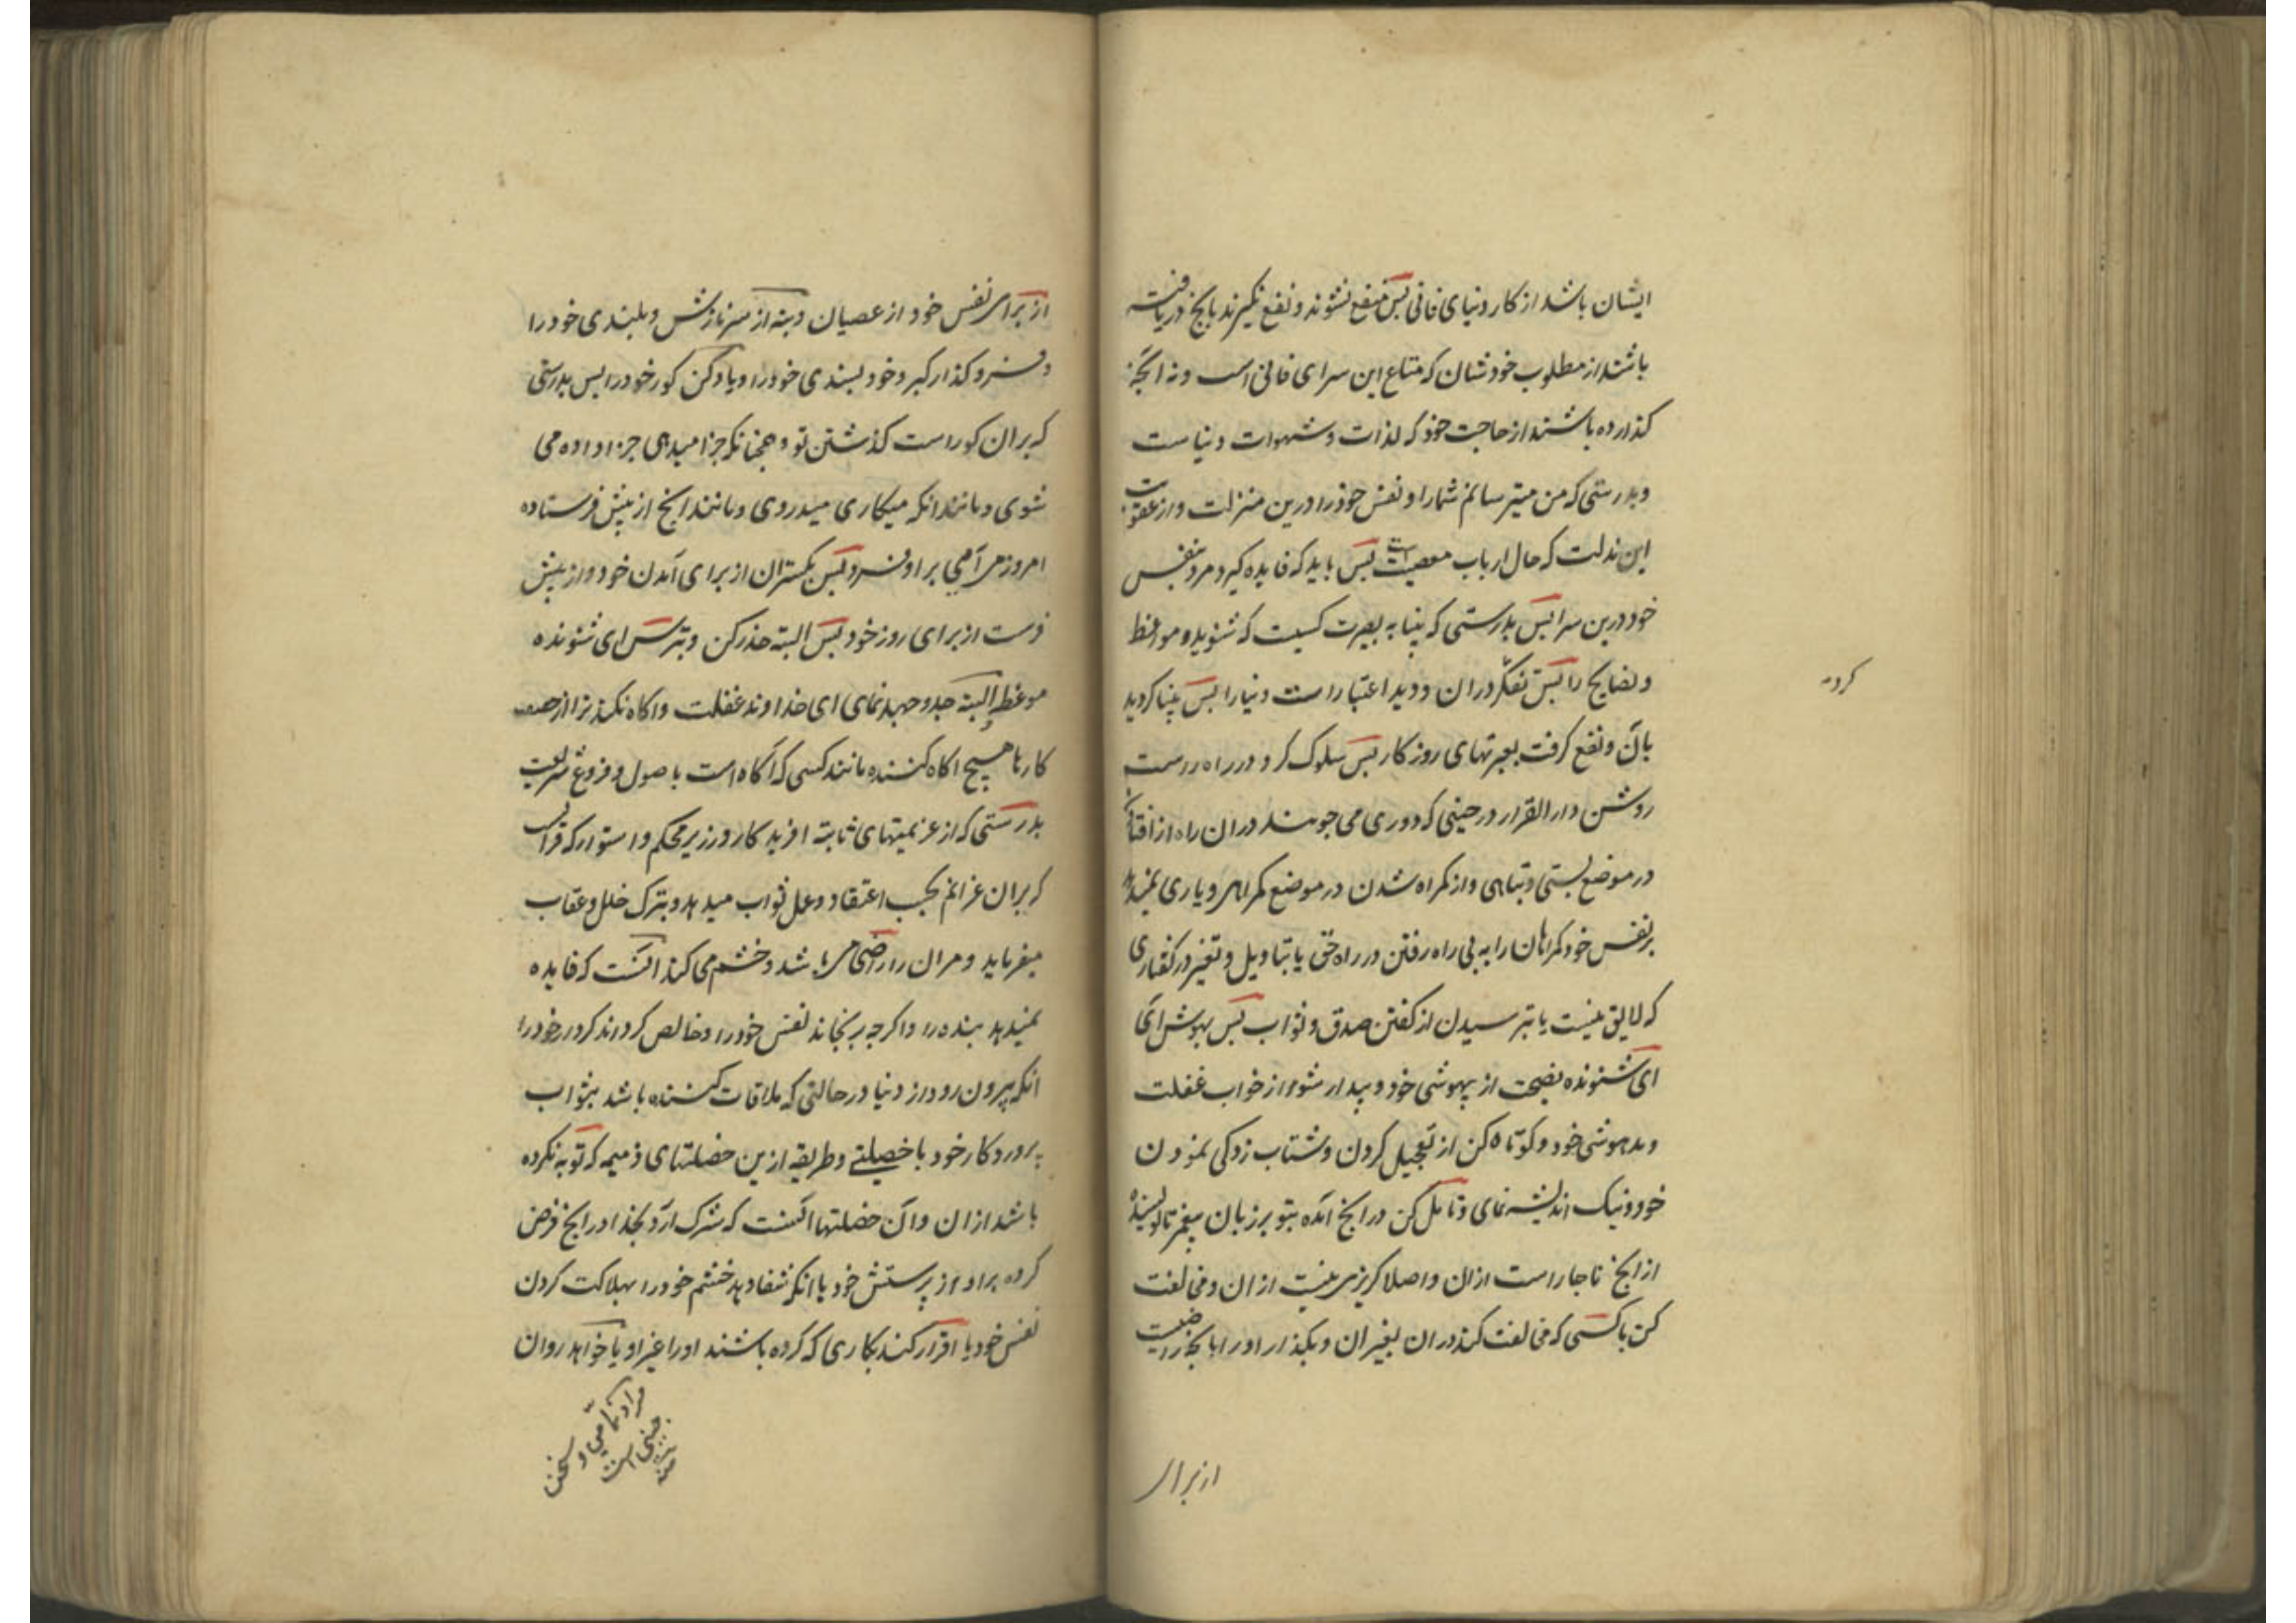 ایشان باشد از کار دنیای فانی پس منتفع نشوند و نفع نگیرند بانچ دریافته
باشند از مطلوب خودشان که متاع این سرای فانی است و نه انچه
گذارده باشند از حاجت خود که لذات و شهوات دنیاست
و بدرستی که من میترسانم شما را و نفس خود را درین منزلت و از عقوبت
این مذلت که حال ارباب معصیت است پس باید که فایده گیرد مرد بنفس
خود درین سرا پس بدرستی که بینا به بصیرت کسیست که شنوید و مواعظ
و نصایح را پس تفکر در ان و دید اعتبار است دنیا را پس بینا گردید
بآن و نفع گرفت بعبرتهای روزگار پس سلوک کرد در راه راست
روشن دار القرار در حینی که دوری می جوید در ان راه از افتادن
در موضع پستی و تباهی و از گمراه شدن در موضع گمراهی و یاری نمیدهد
بر نفس خود گمراهان را به بی راه رفتن در راه حق یا بتاویل و تغییر در گفتاری
که لایق نیست یا بترسیدن از گفتن صدق و ثواب پس بهوش آی
ای شنونده نصیحت از بیهوشی خود و بیدار شو از خواب غفلت
و مدهوشی خود و کوتاه کن از تعجیل کردن و شتاب زدگی نمودن
خود و نیک اندیشه نمای و تامل کن در انچ آمده بتو بر زبان پیغمبر نانویسنده
از انچ ناچار است ازان و اصلا گریزی نیست از ان و مخالفت
کن با کسی که مخالفت کند در ان بغیر ان و بگذار او را با نچه راضیست
کرد
از برای
از برای نفس خود از عصیان و بنه از سر نازش و بلندی خود را
و فرو گذار کبر و خود پسندی خود را و یاد کن گور خود را پس بدرستی
که بران گور است گذشتن تو و همچنانکه جزا میدهی جزا داده می
شوی و مانند انکه میکاری میدروی و مانند انچ از پیش فرستاده
امروز می آمی بر او فردا پس بگستران از برای آمدن خود و از پیش
فرست از برای روز خود پس البته حذر کن و بترس ای شنونده
موعظه و البته جد و جهد نمای ای خداوند غفلت و اگاه نکند ترا از حقیقت
کارها هیچ اگاه کننده مانند کسی که آگاه است باصول و فروع شریعت
بدرستی که از عزیمتهای ثابته افریدکار و رزیر محکم و استوار که قران
که بران عزائم بحسب اعتقاد و عمل ثواب میدهد و بترک خلل و عقاب
میفرماید و مران را راضی می باشد و خشم می کند آنست که فایده
نمیدهد بنده را و اگر چه برنجاند نفس خود را و خالص گرداند کردار خود را
انکه بیرون رود از دنیا در حالتی که ملاقات کننده باشد بثواب
پروردگار خود با خصلتی و طریقه ازین خصلتهای ذمیمه که توبه نکرده
باشد ازان و آن خصلتها آنست که شرک ارد بخدا در انچ فرض
کرده بر او از پرستش خود یا انکه شفا دهد خشم خود را بهلاکت کردن
نفس خود یا اقرار کند بکاری که کرده باشند او را غیر او یا خواهد روان
مراد نمامی و سخن
چینی است
منه